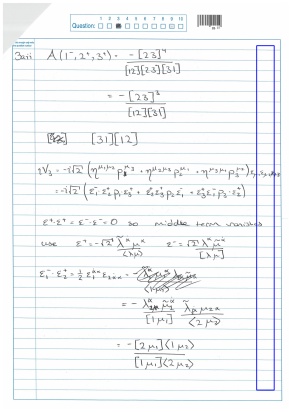 Question: 1 2 3 4 5 6 7 8 9 10
3aii A(1⁻,2⁺,3⁺) = -[23]⁴
[12][23][31]
= -[23]³
[12][31]
[31][12]
iV₃ = -i√2 (η^{μ₁μ₂} p₁^{μ₃} + η^{μ₂μ₃} p₂^{μ₁} + η^{μ₃μ₁} p₃^{μ₂})
= -i√2 (ε₁⁻·ε₂⁺ p₁·ε₃⁺ + ε₂⁺·ε₃⁺ p₂·ε₁⁻ + ε₃⁺·ε₁⁻ p₃·ε₂⁺)
ε⁺·ε⁺ = ε⁻·ε⁻ = 0 so middle term vanishes
use ε⁺ = -√2 λ̃^α̇ μ^α ε⁻ = √2 λ^α μ̃^α̇
⟨λμ⟩ [λμ]
ε₁⁻·ε₂⁺ = ½ ε₁^{α̇α} ε₂α̇α =
= - λ₁^α μ̃₁^α̇ λ̃₂α̇ μ₂α
[1μ₁] ⟨2μ₂⟩
= -[2μ₁]⟨1μ₂⟩
[1μ₁]⟨2μ₂⟩